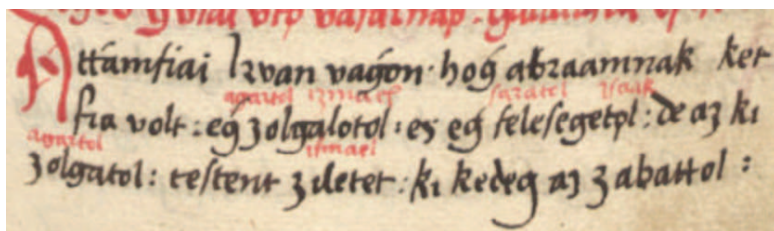 vasarnap
Attamfiai Irvan vagon · hoǵ abraamnak ket
agartol izmael saratol isaak
fia volt : eǵ zolgalotol : es eǵ felesegetol : de az ki
agartol ismael
zolgatol : testent ziletet : ki kedeg az zabattol :